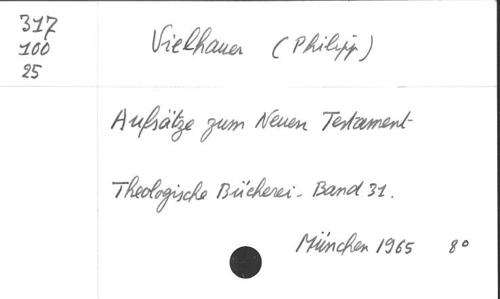 317
100
25
Vielhauer (Philipp)
Aufsätze zum Neuen Testament
Theologische Bücherei - Band 31.
München 1965 8°